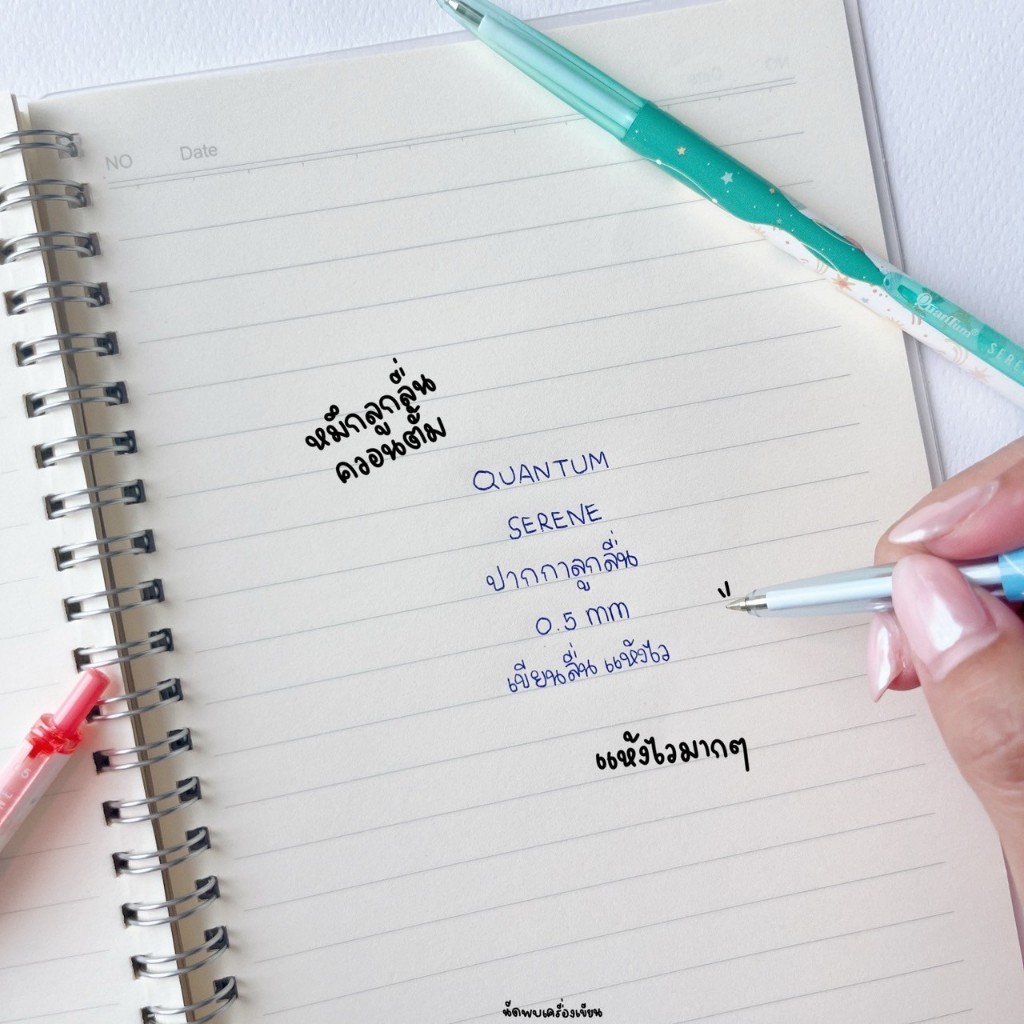 NO Date
QuanTum SERE
หมึกลูกลื่น
ควอนตั้ม
QUANTUM
SERENE
ปากกาลูกลื่น
0.5 mm
เขียนลื่น แห้งไว
แห้งไวมากๆ
นัดพบเครื่องเขียน